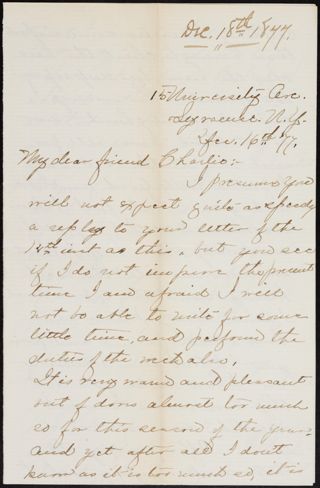 Dec. 18th 1877.
15 University Ave.
Syracuse N.Y.
Dec. 16th 77.
My dear friend Charlie:-
I presume you
will not expect quite as speedy
a reply to your letter of the
inst as this, but you see
if I do not improve the present
time I am afraid I will
not be able to write for some
little time, and perform the
duties of the week also.
It is very warm and pleasant
out of doors almost too much
so for this season of the year
and yet after all I dont
know as it is too much so, it is